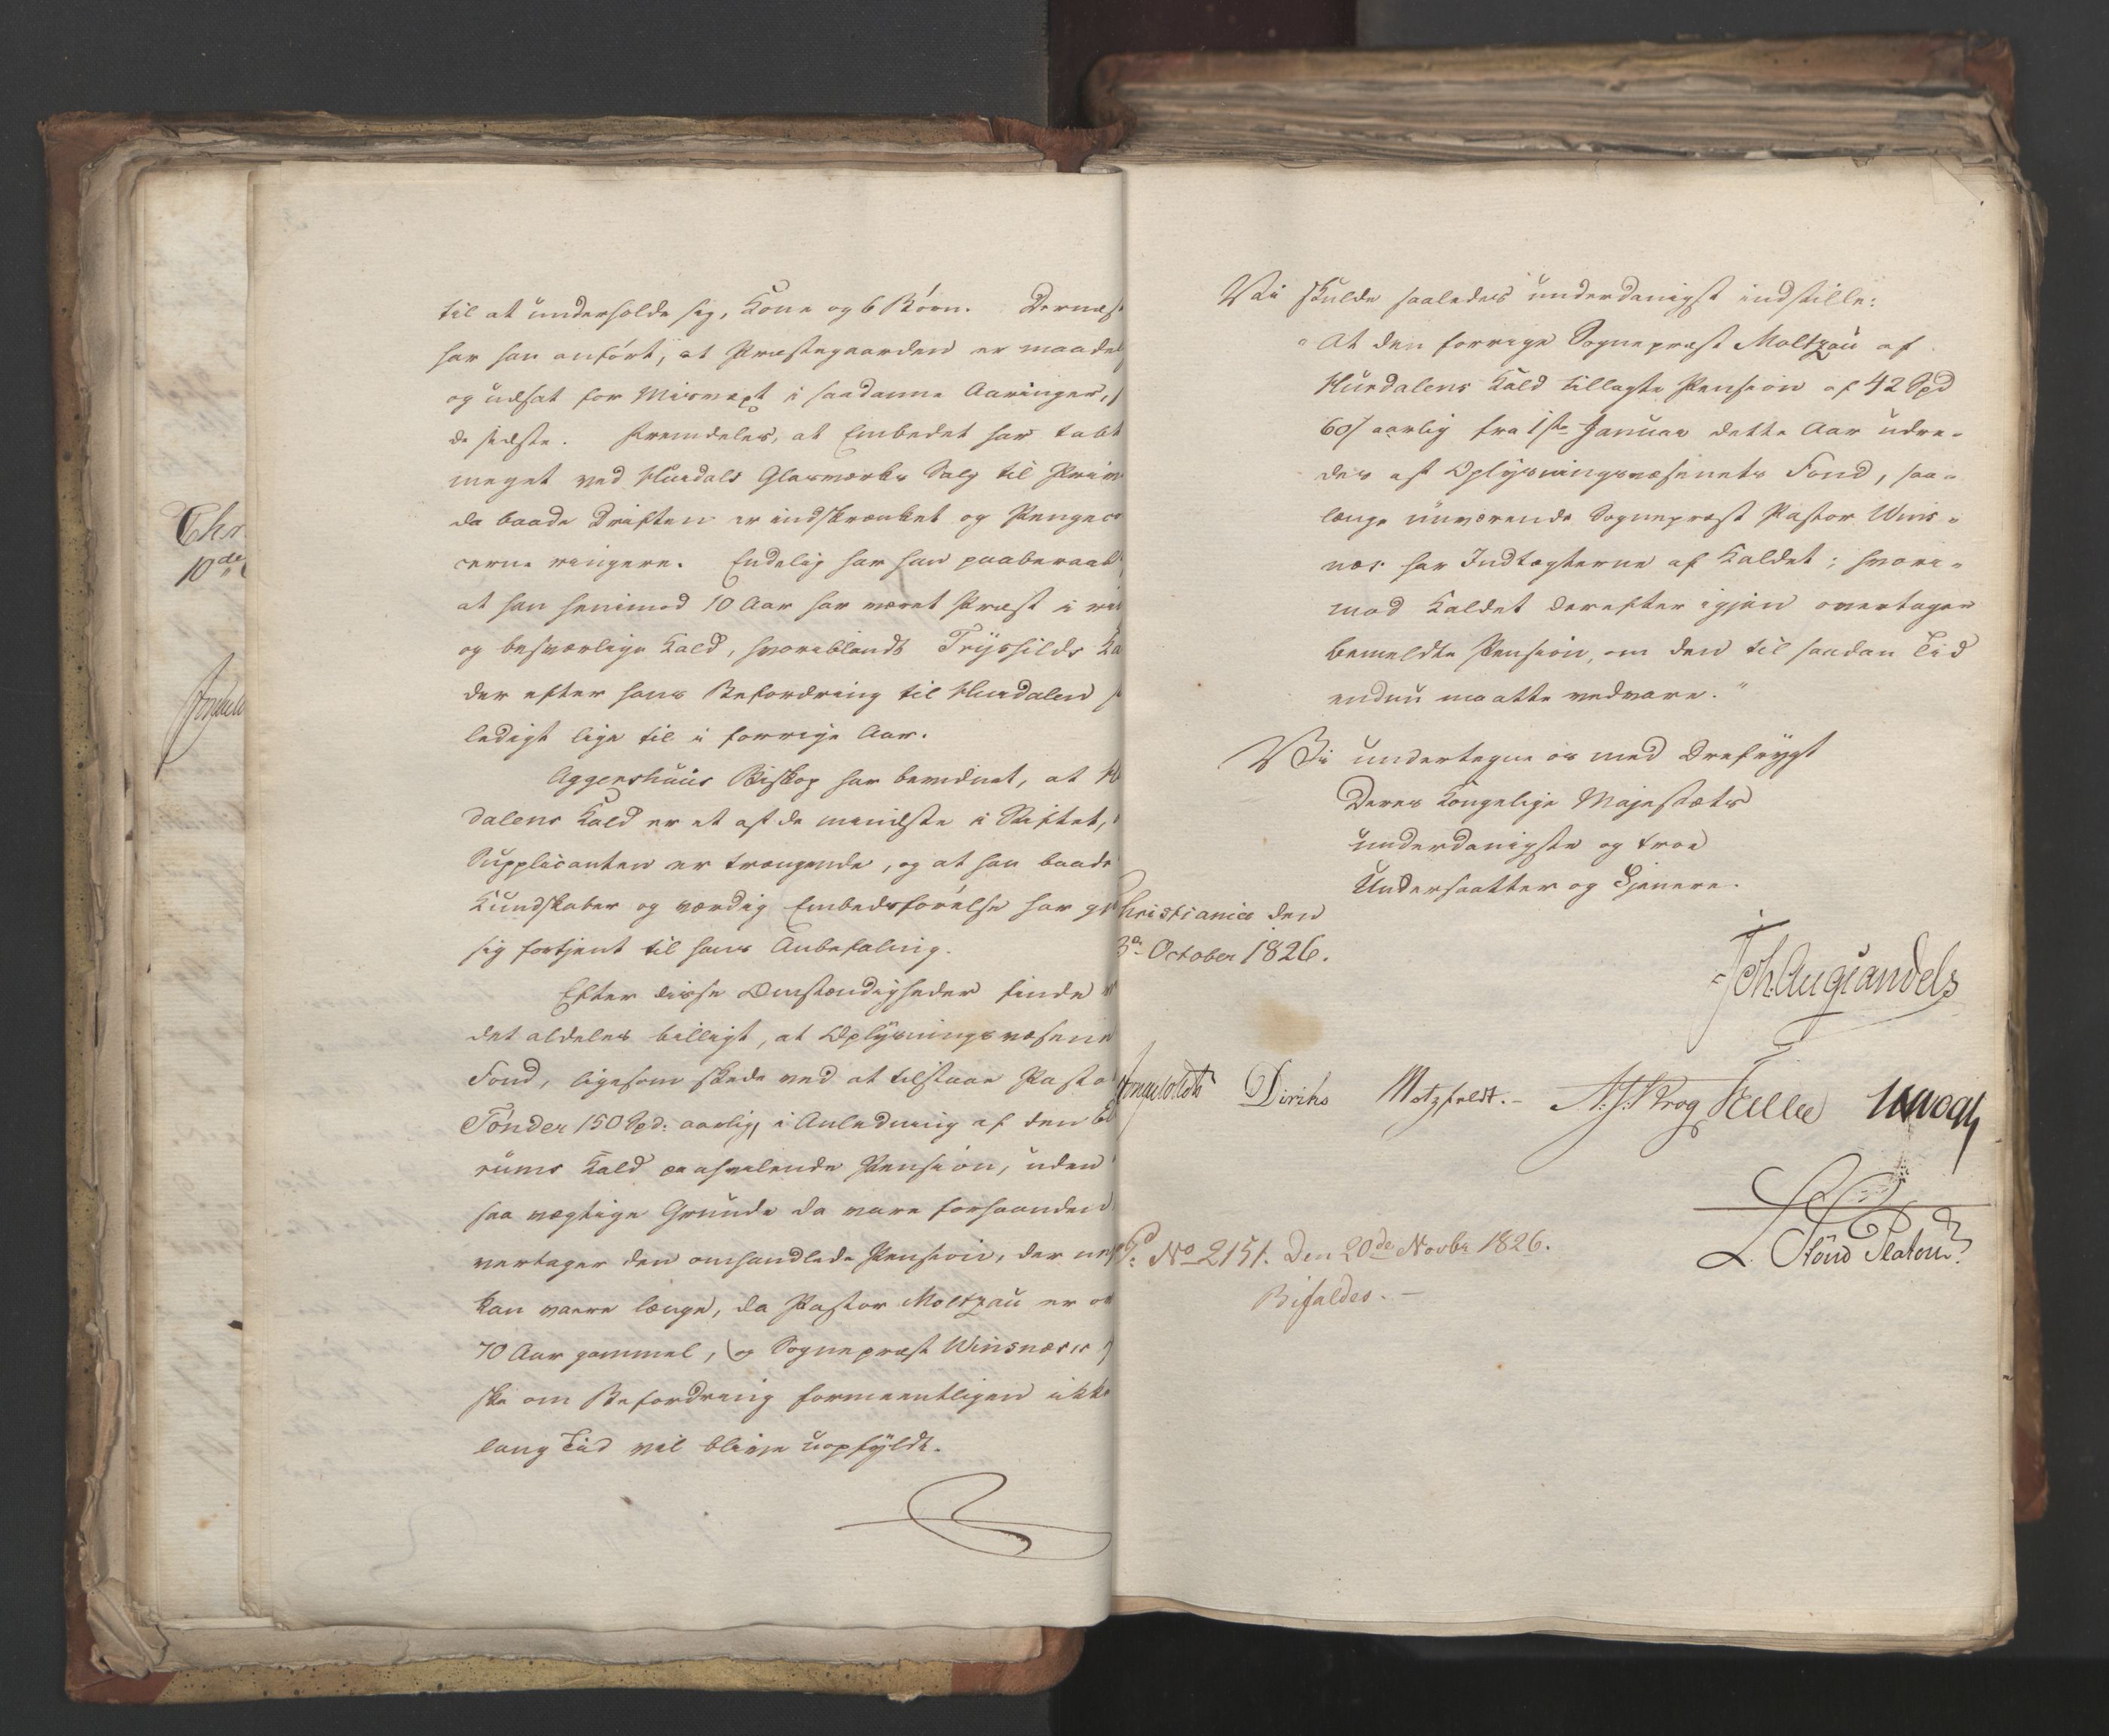 til at underholde sig, Kone og 6 Børn. Dernæst
har han anført, at Præstegaarden er maadel
og udsat for Misvext i saadanne Aaringer,
de sidste. Fremdeles, at Embedet har tabt
meget ved Hurdals Glasværks Salg til Priv
da baade Driften er indskrænket og Pengeco
cerne ringere. Endelig har han paaberaabt
at han henimod 10 Aar har været Præst i
og besværlige Kald, hvoriblandt Tryssilds Ka
der efter hans Befordring til Hurdalen
ledigt lige til i forrige Aar.
Aggershuus Biskop har bevidnet, at H
dalens Kald er et af de mindste i Stiftet,
Supplicanten er trængende, og at han baade
Kundskaber og værdig Embedsførelse har g
sig fortjent til hans Anbefaling.
Efter disse Omstændigheder finde
det aldeles billigt, at Oplysningsvæsene
Fond, ligesom skede ved at tilstaae Pasto
Tønder 150 Spd: aarlig, i Anledning af den
rums Kald paahvilende Pension, uden
saa vægtige Grunde da vare forhaanden
vertager den omhandlede Pension, der
kan vaere længe, da Pastor Moltzau er o
70 Aar gammel, og Sognepræst Winsnæses
ske om Befordring formeentligen ikke
lang Tid vil blive uopfyldt.
Chr
10de
Vii skulde saaledes underdanigst indstille:
"At den forrige Sognepræst Moltzau af
Hurdalens Kald tillagte Pension af 42 Spd
60 / aarlig fra 1ste Januar dette Aar udre-
des af Oplysningsvæsenets Fond, saa-
længe nuværende Sognepræst Pastor Wins-
næs har Indtægterne af Kaldet; hvori-
mod Kaldet derefter igjen overtager
bemeldte Pension, om den til saadan Tid
endnu maatte vedvare."
Vi undertegne os med Drefrygt
Deres Kongelige Majestæts
underdanigste og troe
Undersaatter og Tjenere.
Christiania den
3de October 1826.
Joh. Aug. Sandels
Diriks Motzfeldt. A. J. Krog
L. Stoud Platou
No 2151. Den 20de Novbr 1826.
Bifaldes.